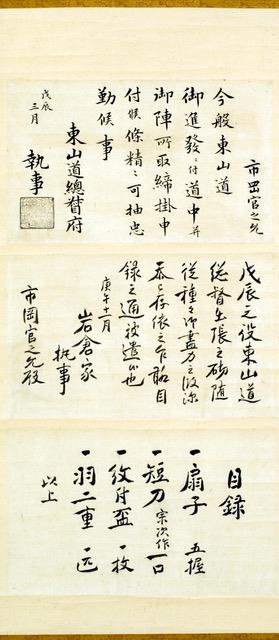 市岡官之允
今般東山道
御進發ニ付道中并
御陣所取締掛申
付候條精々可抽忠
勤候事
東山道總督府
執事
戊辰
三月
戊辰之役東山道
総督出張之砌随
従種々御盡力之段深
忝被存依之乍軽目
録之通被遣候也
岩倉家
執事
庚午十一月
市岡官之允殿
目録
一扇子 五握
一短刀 宗次作 一口
一紋付盃 一枚
一羽二重 一疋
以上